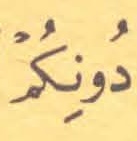 دُونِكُمْ